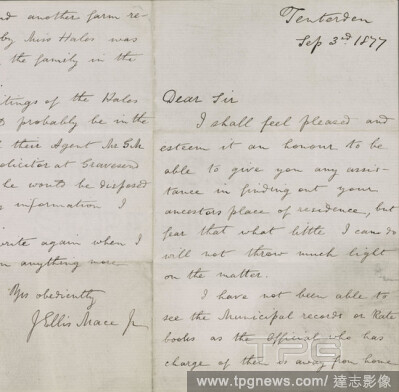 nd another farm re-
by Miss Hales was
the family in the
itings of the Hales
probably be in the
their Agent Mr.
olicitor at Gravesend
he would be disposed
information I
write again when I
anything more
Yrs obediently
J Ellis Mace Jr
Tenterden
Sep 3rd 1877
Dear Sir
I shall feel pleased and
esteem it an honour to be
able to give you any assis-
tance in finding out your
ancestors place of residence, but
fear that what little I can do
will not throw much light
on the matter.
I have not been able to
see the Municipal records or Rate
books as the Official who has
charge of them is away from home
TPG
www.tpgnews.com/達志影像